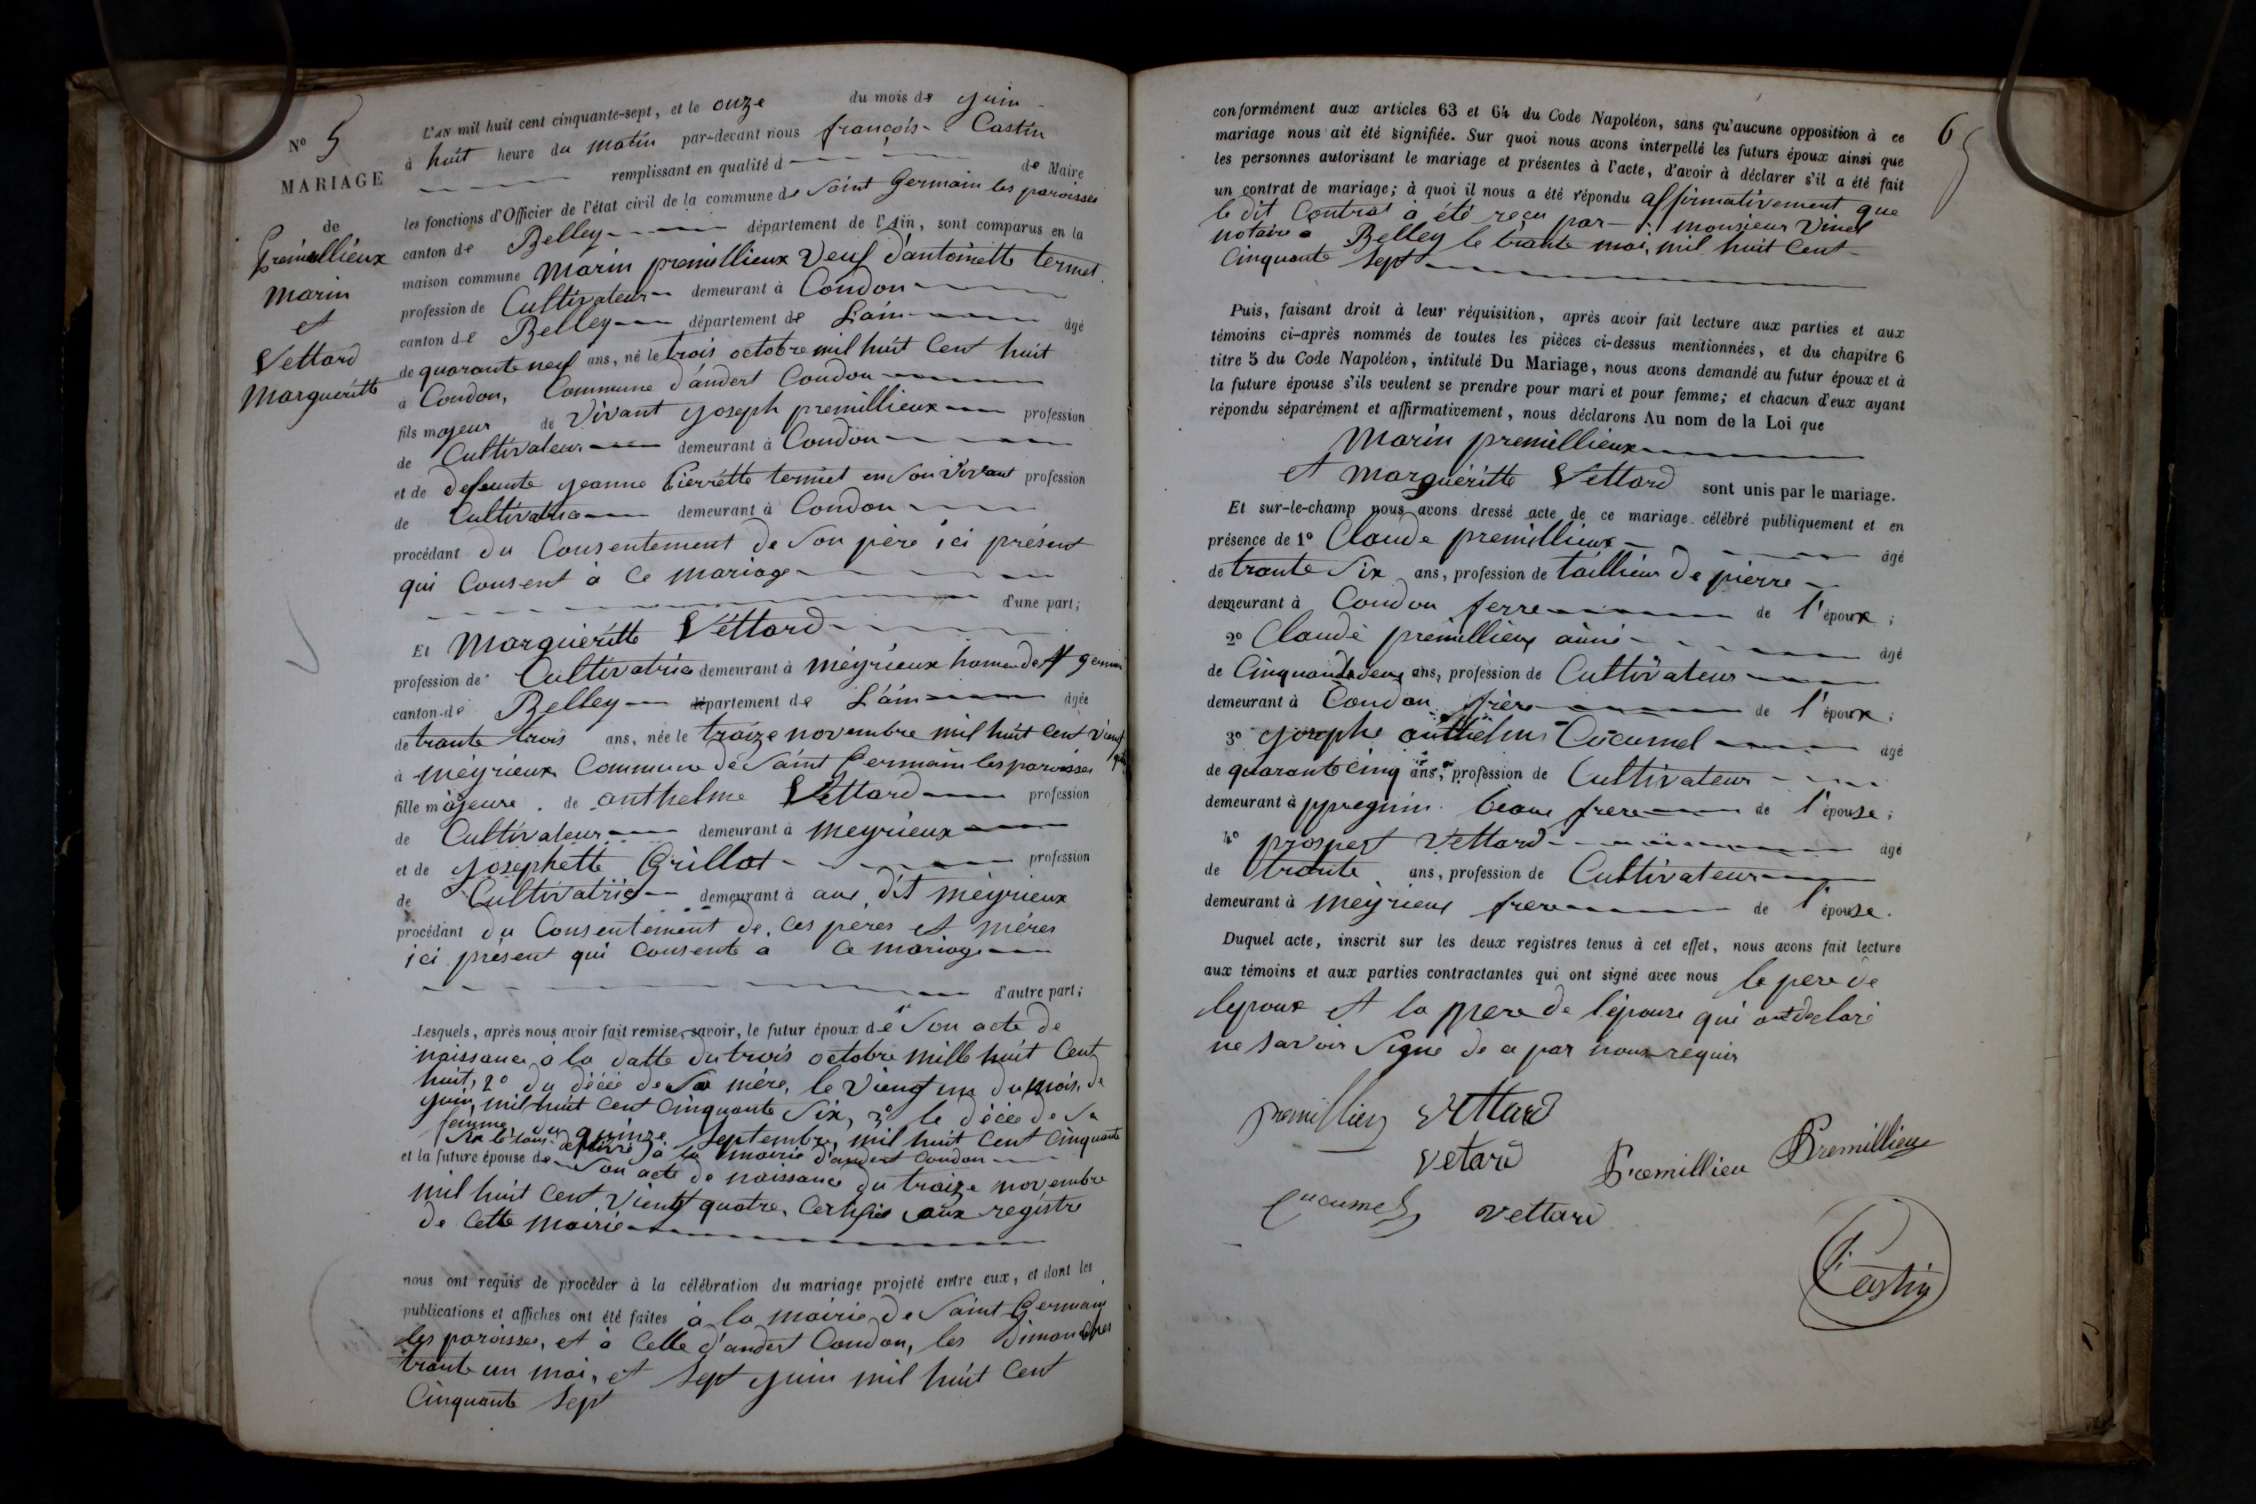 N° 5
MARIAGE
de
Premillieux
Marin
et
Vettard
Margueritte
L'AN mil huit cent cinquante-sept, et le onze du mois de juin
à huit heure du matin par-devant nous françois Castin
remplissant en qualité d de Maire
les fonctions d'Officier de l'état civil de la commune de Saint Germain les paroisses
canton de Belley département de l'Ain, sont comparus en la
maison commune Marin premillieux Veuf d'antoinette termet
profession de Cultivateur demeurant à Condon
canton de Belley département de L'ain âgé
de quarante neuf ans, né le trois octobre mil huit Cent huit
à Condon, Commune d'andert Condon
fils majeur de Vivant joseph premillieux profession
de Cultivateur demeurant à Condon
et de defeunte jeanne Pierrétte termet en son vivant profession
de Cultivatrice demeurant à Condon
procédant du Consentement de Son père ici présent
qui Consent à Ce mariage
d'une part;
Et Margueritte Véttard
profession de Cultivatrice demeurant à méyrieux hameau de St germain
canton de Belley département de L'ain âgée
de trante trois ans, née le traize novembre mil huit Cent vient
à méyrieux Commune de Saint Germain les paroisses
fille majeure de anthelme Véttard profession
de Cultivateur demeurant à Meyrieux
et de josephette Grillot profession
de Cultivatrice demeurant à aux dit méyrieux
procédant du Consentement de Ces pères et méres
ici présent qui Consente a Ce mariage
d'autre part;
Lesquels, après nous avoir fait remise, savoir, le futur époux de 1° Son acte de
naissance à la datte du trois octobre mille huit Cent
huit, 2° du décée de Sa mére, le Vient un du mois de
juin, mil huit Cent Cinquante Six, 3° le décée de Sa
femme du quinze Septembre, mil huit Cent Cinquante
Six le tous délivré à la mairie d'andert Condon
et la future épouse de Son acte de naissance du traize novembre
mil huit Cent Vient quatre, Certifié aux registre
de Cette Mairie
nous ont requis de procéder à la célébration du mariage projeté entre eux, et dont les
publications et affiches ont été faites à la mairie de Saint Germain
les paroisses, et à Celle d'andert Condon, les Dimanches
trante un mai, et Sept juin mil huit Cent
Cinquante Sept
6
5
conformément aux articles 63 et 64 du Code Napoléon, sans qu'aucune opposition à ce
mariage nous ait été signifiée. Sur quoi nous avons interpellé les futurs époux ainsi que
les personnes autorisant le mariage et présentes à l'acte, d'avoir à déclarer s'il a été fait
un contrat de mariage; à quoi il nous a été répondu affirmativement que
le dit Contrat à été reçu par monsieur Vinel
notaire a Belley le trante mai, mil huit Cent
Cinquante Sept
Puis, faisant droit à leur réquisition, après avoir fait lecture aux parties et aux
témoins ci-après nommés de toutes les pièces ci-dessus mentionnées, et du chapitre 6
titre 5 du Code Napoléon, intitulé Du Mariage, nous avons demandé au futur époux et à
la future épouse s'ils veulent se prendre pour mari et pour femme; et chacun d'eux ayant
répondu séparément et affirmativement, nous déclarons Au nom de la Loi que
Marin premillieux
et margueritte Vettard sont unis par le mariage.
Et sur-le-champ nous avons dressé acte de ce mariage célébré publiquement et en
présence de 1° Claude premillieux âgé
de trante Six ans, profession de tailleur de pierre
demeurant à Condon ferre de l'époux;
2° Claude premillieux ainé âgé
de Cinquante deux ans, profession de Cultivateur
demeurant à Condon frère de l'époux;
3° josephe anthelme Cucumel âgé
de quarante Cinq ans, profession de Cultivateur
demeurant à ppregnin beaux frere de l'épouse;
4° prospert Vettard âgé
de trante ans, profession de Cultivateur
demeurant à méyrieux frere de l'épouse.
Duquel acte, inscrit sur les deux registres tenus à cet effet, nous avons fait lecture
aux témoins et aux parties contractantes qui ont signé avec nous le pere de
lepoux et la Mere de l'épouse qui ont declaré
ne Savoir Signé de a par nous requis
premillieu Vettard
vetard Premillieu Premillieux
Cucumel vettard
Castin